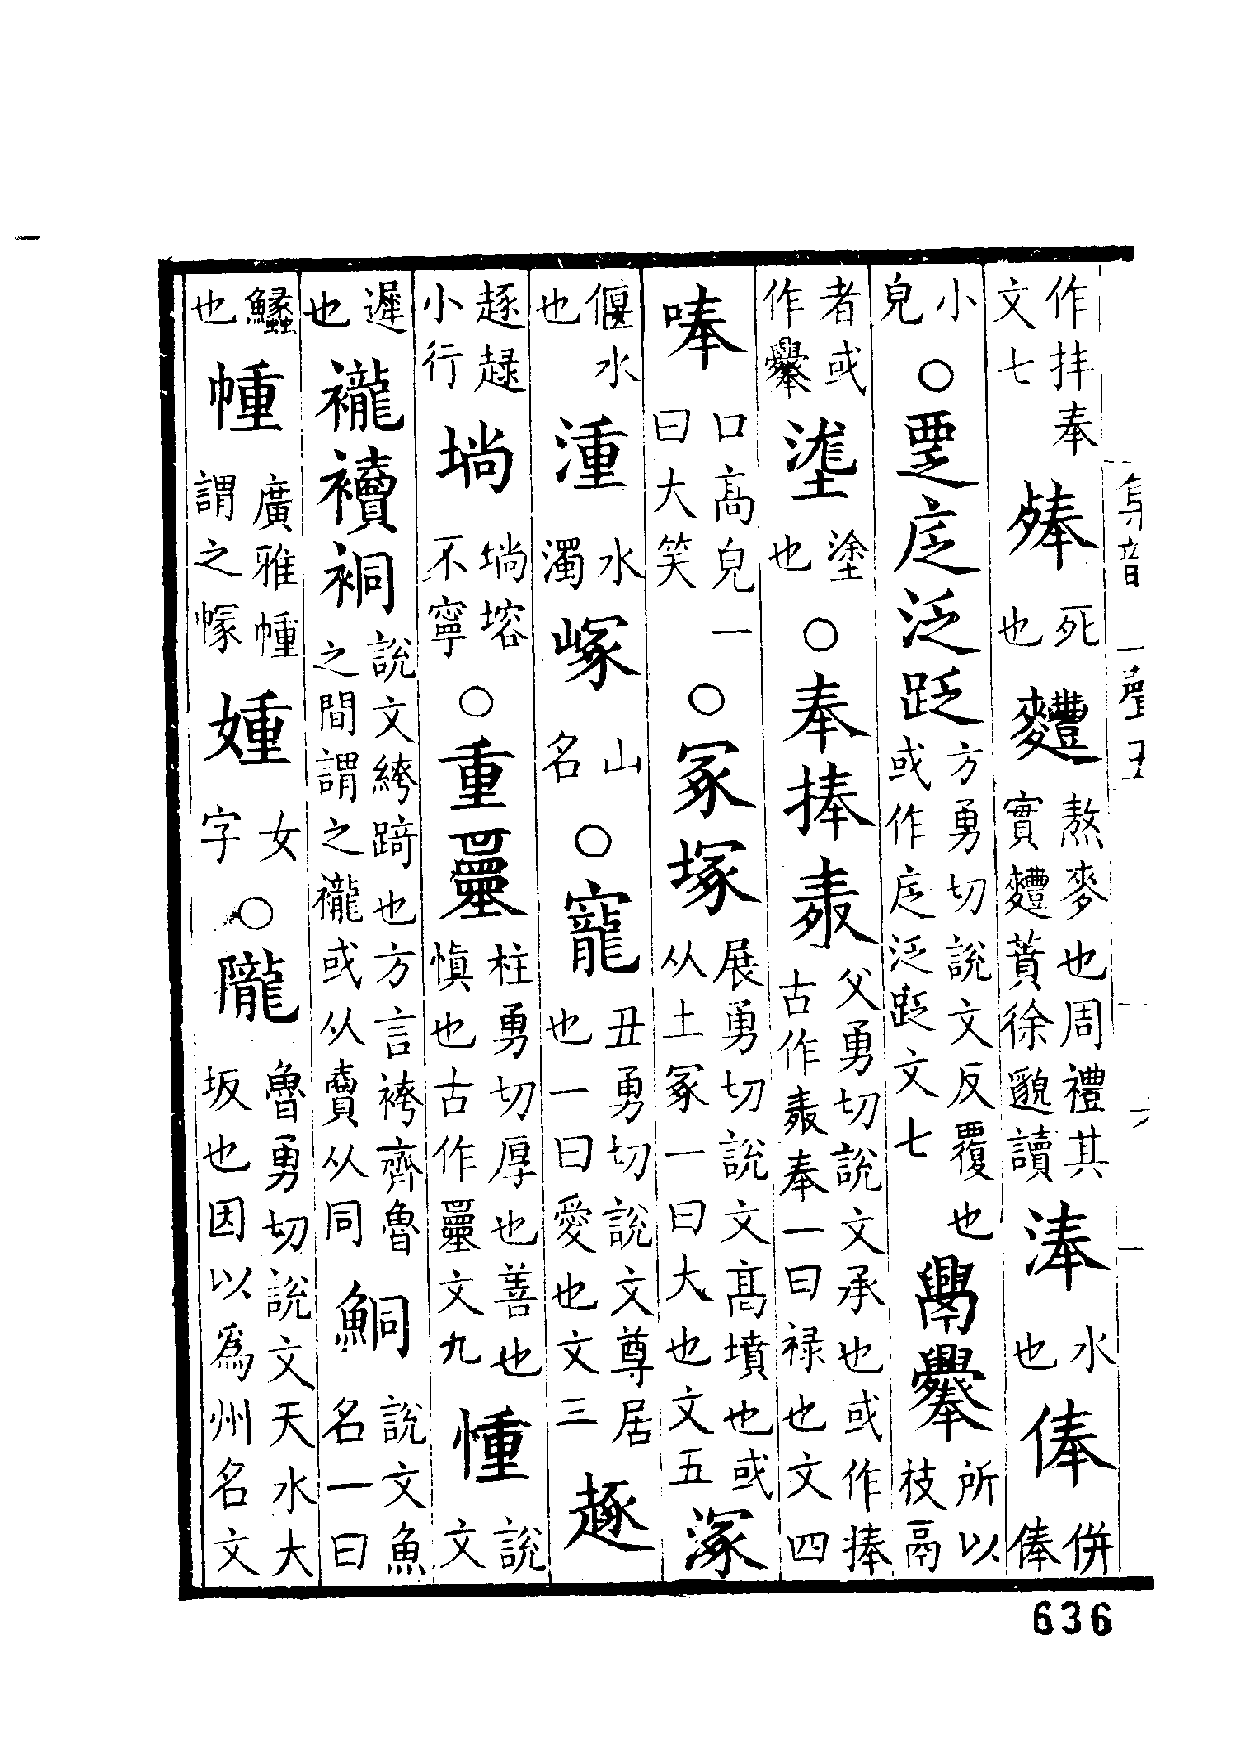 作拝奉文七 𣨛 死也 麷 熬麥也周禮其實麷蕡徐邈讀 湊 水也 俸 併俸
小皃 ○ 覂 㕹 泛 𧿨 方勇切說文反覆也或作㕹泛𧿨文七 所以枝鬲
者或作 塗也 ○ 奉 捧 父勇切說文承也或作捧古作 奉一曰禄也文四
唪 口高皃一曰大笑 ○ 冢 塚 展勇切說文高墳也或从土冢一曰大也文五 㴳
偃水也 湩 水濁 嵕 山名 ○ 寵 丑勇切說文尊居也一曰愛也文三
小行 㙁 不寧 ○ 重 柱勇切厚也善也慎也古作 文九 㣫 說文
遲也 襱 襩 裥 說文絝踦也方言袴齊魯之間謂之襱或从賣从同 鮦 說文魚名一曰
鱺也 㡖 廣雅㡖謂之幏 媑 女字 ○ 隴 魯勇切說文天水大坂也因以爲州名文
636